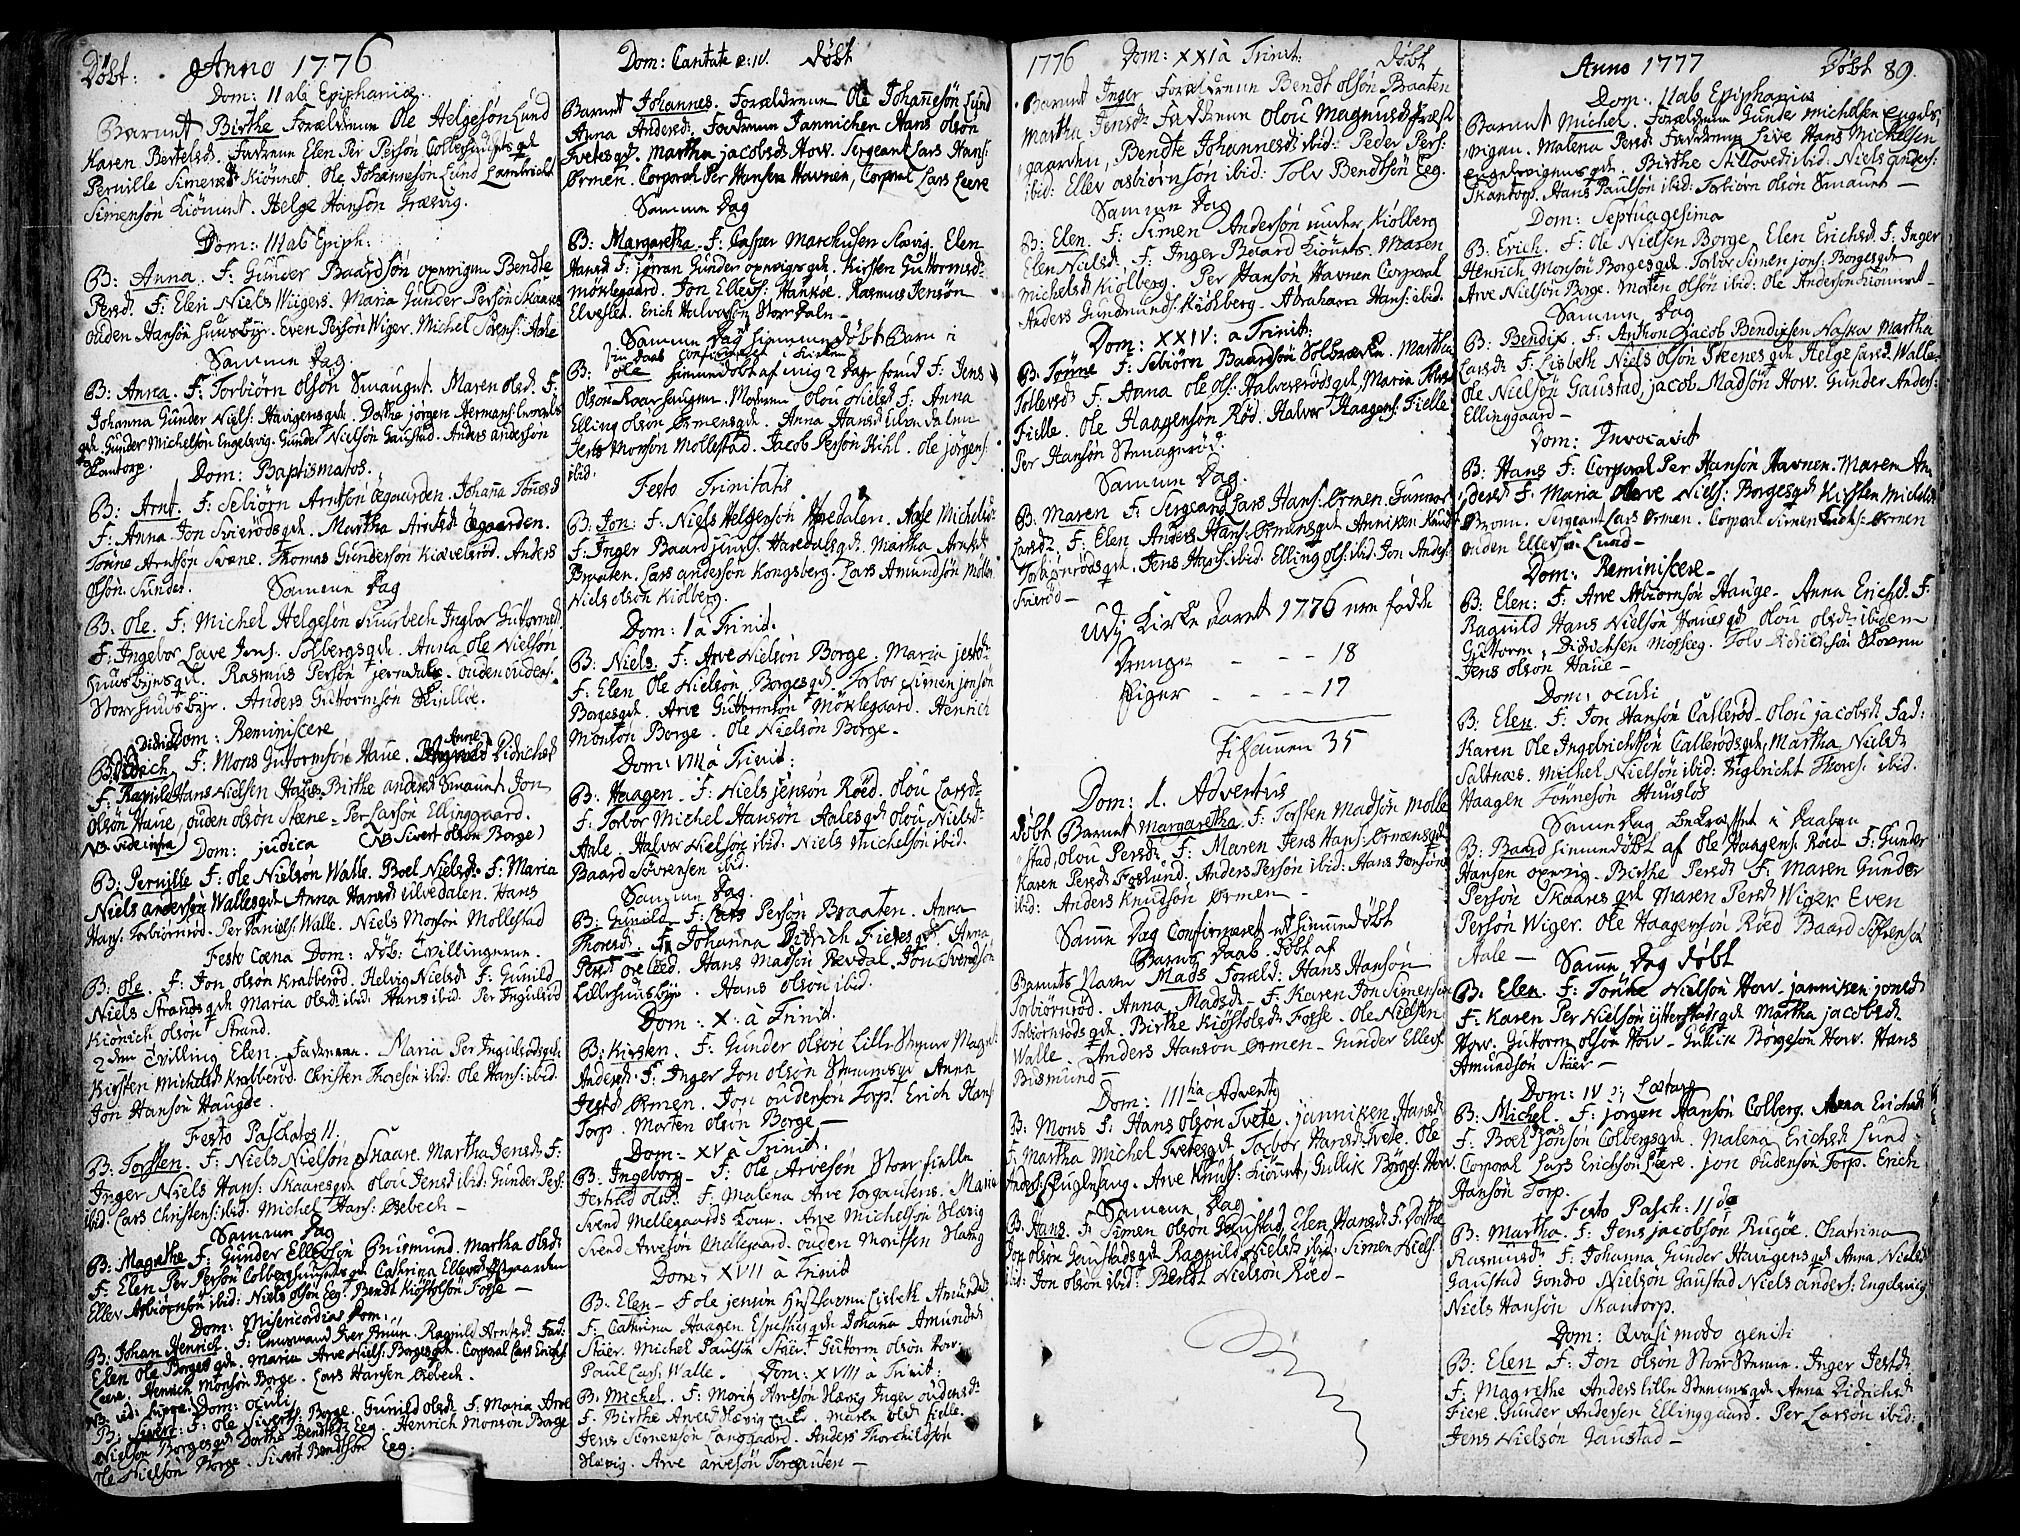 Døbt: Anno 1776
Dom: II ab Epiphaniæ.
Barnet Birthe Forældrene Ole Helgesøn Lund
Karen Bertelsd. Faddrene Elen Per Persøn
Pernille Simens Kiønnet. Ole Johannesøn Lund
Simensøn Kiönnet. Helge Hansøn Græsvig.
Dom: III ab Epiph:
B: Anna. F: Gunder Baardsøn Bendte
Persd. F: Elen Niels Wiigers. Maria Gunder Persøn Skaares
ouden Hansøn Huusbye. Even Persøn Wiger. Michel Sørens: Aale
Samme Dag.
B: Anna. F: Torbiørn olsøn Smauget. Maren olsd. F:
Johanna Gunder Niels: Dorthe jörgen Hermans:
Gunder Michelsøn Engelsvig. Gunder Nielsøn Gaustad. Anders andersøn
Skantorp.
Dom: Baptismatos.
B: Arnt. F: Sebiørn Arntsøn Øegaarden. Johanna Tønnesd
F: Anna Jon Martha Arntsd. Øegaarden.
Tønne Arntsøn Svæne. Thomas Gundersøn Kiævelsrød. Anders
olsøn Sundet.
Samme Dag
B: Ole. F: Michel Helgesøn Ingbor Guttormsd
F: Ingebor Lave Jens: Solbergs qd. Anna Ole Nielsøn
Huusbyes qd. Rasmus Persøn
Storrhuusbye. Anders Guttormsøn Skjelloe.
Dom: Reminiscere
B: Didrich F: Mons Guttormsøn Haue. Anne Didrichsd
F: Ragnild Hans Nielsen Haues Birthe andersd Smaunt Jon
olsøn Haue, ouden olsøn Skene - Per Larsøn Ellinggaard.
NB vide infra Dom: judica (NB Sivert olsøn Borge)
B: Pernille F: Ole Nielsøn Walle. Boel Nielsd. F: Maria
Niels andersøn Walles qd. Anna Hansd Ulvedalen. Hans
Hans: Torbiørnrød. Per Daniels: Walle. Niels Monsøn Mollestad
Festo Cæna Dom: Døb: Tvillingerne.
B: Ole. F: Jon olsøn Krabberød. Helvig Nielsd. F: Gunild
Niels Strands qd. Maria olsd: ibid: Hans ibid. Per Ingulsrød
olsøn Strand.
2den Tvilling Elen. Faddrene. Maria Per Ingulsrøds qd:
Kirsten Michelsd Krabberød. Christen Thoresøn ibid: Ole Hans: ibid.
Jon Hansøn Haugee.
Festo Paschatos II.
B: Torsten. F: Niels Nielsøn Skaare. Martha Jensd. F:
Inger Niels Hans: Skaares qd. olou Jensd ibid: Gunder Pers:
ibid: Lars Christens: ibid: Michel Hans: Øebech -
Samme Dag
B: Magrethe F: Gunder Ellevsøn Martha olsd.
F: Elen Per Persøn Cathrina Ellevsd Øegaarden
Ellev Asbiørnsøn ibid: Niels olsøn Eeg. Bendt Kiøstolsøn Fosse -
Dom: Misericordias Dom:
B: Johan Henrich. F: Iver Ragnild Arntsd. Fad:
Elen Ole Borges qd. Maria Arve Niels: Borges qd. Corporal Lars Erichs:
Leere. Henrich Monsøn Borge. Lars Hansen Øebech.
NB vid: supra: Dom: Oculi
B: Sivert: F: Ole Siverts: Borge. Gunild olsd. F: Maria Arve
Nielsøn Borges qd. Dorthe Bendtsd: Eeg. Henrich Monsøn Borge
Ole Nielsøn Borge. Sivert Bendtsøn Eeg.
Dom: Cantate e:iv. Døbt
Barnet Johannes. Forældrene Ole Johannesøn Lund
Anna Andersd. Faddrene Jannichen Hans olsøn
Tvetes qd. Martha jacobsd. How. Sergeant Lars Hans:
Ørmen. Corporal Per Hansen Havnen, Corporal Lars Leere
Samme Dag
B: Margaretha. F: Casper Marchusen Elen
Hansd F: jørran Gunder Kirsten Guttormsd.
Möklegaard. Jon Ellevs: Hankøe. Rasmus Jensøn
Elveslet. Erich Halversøn Storrdalen -
Samme Dag hiemme døbt Barn i
B: Ole hiemmedøbt af mig 2 dage forud F: Jens
Olsøn Moren Olou Nielsd F: Anna
Elling olsøn Ørmens qd. Anna Hansd Ulvedalen
Jens Monsøn Mollestad. Jacob Persøn Kihl. Ole jørgens:
ibid.
Festo Trinitatis
B: Jon: F: Niels Helgesøn Haredalen. Aase Michelsd:
F: Inger Baard jens: Haredals qd. Martha Arntsd
Braaten. Lars andersøn Kongsberg. Lars Amundsøn
Niels olsøn Kiølberg.
Dom: I à Trinit.
B: Niels. F: Arve Nielsøn Borge. Maria
F: Elen Ole Nielsøn Borges qd. Torbor Simen jonsøn
Borges qd. Arve Guttormsøn Möklegaard. Henrich
Monsøn Borge. Ole Nielsøn Borge -
Dom: VIII à Trinit:
B: Haagen. F: Niels jensøn Røed. Olou Larsd.
F: Torbor Michel Hansøn Aales qd. Olou Nielsd.
Aale. Halvor Nielsøn ibid: Niels Michelsøn ibid.
Baard Sörensen ibid.
Samme Dag.
B: Gunild. F: Lars Persøn Braaten. Anna
Thoresd. F: Johanna Didrich Anna
Persd Hans Madsøn Jon Svensøn
Lillehuusbye. Hans olsøn ibid.
Dom: X: à Trinit.
B: Kirsten. F: Gunder olsøn Lille
Andersd. F: Inger Jon olsøn Anna
Jestd Ørmen. Jon oudensøn Torp. Erich Hans:
Torp. Morten olsøn Borge -
Dom: XV à Trinit:
B: Ingeborg - F: Ole Arvesøn Storrfielle
olsd. F: Malena Arve Torgautens. Maria
Svend Mellegaards Arve Michelsøn
Svend Arvesøn Mellegaard. ouden Moritsen
Dom: XVII à Trinit
B: Elen - F Ole jensøn Lisbeth Amunds:
F: Cathrina Haagen Johana Amundsd
Stäer. Michel Paulsøn Stäer. Guttorm olsøn
Paul Lars: Walle. Dom: XVIII à Trinit:
B: Michel. F: Morits Arvesøn Inger oudensd.
F: Birthe Arvesd Maren olsd Fielle.
Jens Simensøn Langgaard. Anders Thorchildsøn
Arve arvesøn Torgauten -
1776 Dom: XXI à Trinit: Døbt
Barnet Inger Forældrene Bendt olsøn Braaten
Martha Jensd: Faddrene Olou Magnusd Præste
gaarden, Bendte Johannesd: ibid: Peder Pers:
ibid: Ellev asbiørnsøn ibid: Tolv Bendtsøn Eeg.
Samme Dag
B: Elen. F: Simen Andersøn under Kiølberg
Elen Nielsd: F: Inger Maren
Michelsd Kiølberg. Per Hansøn Havnen Corporal
Anders Gundmunds: Kiølberg. Abraham Hans: ibid.
Dom: XXIV: à Trinit:
B: Tönne F: Sebiörn Baardsøn Martha
Tollevsd. F: Anna Ole ols: Halversrøds qd, Maria
Fielle. Ole Haagensøn Rød. Halvor Haagens: Fielle.
Per Hansøn Stenagerød.
Samme Dag.
B: Maren F: Sergeant Lars Hans: Ørmen. Gunnor
Larsd: F: Elen Anders Hans: Ørmens qd. Anniken
Torbiørnrøds qd. Jens Hans: ibid: Elling ols: ibid: Jon Anders:
-
Udj Kirke Aaret 1776 ere fødde
Drenge - - - 18
Piger - - - - 17
Tilsammen 35
Dom: 1. Adventus
Døbt Barnet Margaretha. F: Torsten Madsøn Molle
stad, olou Persd. F: Maren Jens Hans: Ørmens qd
Karen Persd Foslund. Anders Persøn ibid: Hans Jonsøn
ibid: Anders Knudsøn Ørmen -
Samme Dag Confirmeret et hiemmedøbt
Barns Daab. Døbt af
Barnets Navn Mads Foræld: Hans Hansøn
Torbiørnrød. Anna Madsd - F: Karen Jon Simensøn
Torbiørnrøds qd. Birthe Kiøstolsd Fosse. Ole Nielsøn
Walle. Anders Hansøn Ørmen - Gunder Ellevs:
Bismund -
Dom: IIItia Adventq
B: Mons F: Hans olsøn Tvete. janniken Hansd.
F: Martha Michel Tvetes qd. Torbor Hansd Tvete. Ole
Fuglesang. Arve Knuds: Kiönnet, Gullik Börges: How.
Samme Dag
B: Hans. F: Simen olsøn Gaustad, Elen Hansd: F: Dorthe
Jon olsøn Gaustads qd. Ragnild Nielsd: ibid: Simen Niels:
ibid: Jon olsøn ibid: Bendt Nielsøn Røed -
Anno 1777 Døbt 89.
Dom: II ab Epiphania
Barnet Michel. Forældrene Gunder Michelsen Engels
vigen. Malena Persd. Faddrene Live Hans Michelsen
Engelsvigens qd. Birthe ibid: Niels anders:
Skantorp. Hans Paulsøn ibid: Torbiørn olsøn Smaunt -
Dom: Septuagesima
B: Erich. F: Ole Nielsøn Borge Elen Erichsd. F: Inger
Henrich Monsøn Borges qd. Torbor Simen jons: Borges qd
Arve Nielsøn Borge. Morten olsøn ibid: Ole Andersøn Kiönnet -
Samme Dag
B: Bendix. F: Anthon Jacob Bendixen Martha
Larsd: F: Lisbeth Niels olsøn Skenes qd Helge Larsd. Walle -
Ole Nielsøn Gaustad, jacob Madsøn How. Gunder Anders:
Ellinggaard -
Dom: Invocavit
B: Hans F: Corporal Per Hansøn Havnen. Maren An
dersd. F: Maria Arve Niels: Borges qd. Kirsten Michelsd.
Brønn. Sergeant Lars Ørmen. Corporal Simen Erichs: Ørmen
ouden Ellevsøn Lund -
Dom: Reminiscere -
B: Elen: F: Arve Asbiørnsøn Hauge - Anna Erichsd. F:
Ragnild Hans Nielsøn Haues qd. Olou olsd. ibidem
Guttorm Didrichsen Tolv Didrichsøn
Jens olsøn Haue -
Dom: oculi
B: Elen. F: Jon Hansøn Callerød - Olou jacobsd: Fad:
Karen Ole Ingebrichtsøn Callerøds qd. Martha Nielsd.
Saltnæs. Michel Nielsøn ibid: Ingbricht Thores: ibid.
Haagen Tönnesøn Huuslos
Samme Dag Bekræftet i Daaben
B: Baard hiemmedøbt af Ole Haagens: Røed F: Gunder
Hansen Birthe Persd. F: Maren Gunder
Persøn Skaares qd Maren Persd Wiger Even
Persøn Wiger. Ole Haagensøn Røed Baard Sörensøn
Aale - Samme Dag døbt
B: Elen F: Tönne Nielsøn How - janniken jonsd.
F: Karen Per Nielsøn Martha jacobsd.
How. Guttorm olsøn How - Gullik Børgesøn How. Hans
Amundsøn Stäer -
Dom: IV Lætare
B: Michel. F: jørgen Hansøn Colberg. Anna Erichsd
F: Boel Jonsøn Colbergs qd. Malena Erichsd Lund
Corporal Lars Erichsøn Leere. jon oudensøn Torp. Erich
Hansøn Torp.
Festo Pasch: II da
B: Martha. F: Jens jacobsøn Rugöe. Chatrina
Rasmusd: F: Johanna Gunder Havigens qd Anna Nielsd
Gaustad Gondro Nielsøn Gaustad Niels anders: Engelsvig
Niels Hansøn Skantorp.
Dom: Qvasi modo geniti
B: Elen F: Jon olsøn Inger Jestd.
F: Magrethe Anders Lille Anna Didrichsd
Gunder Andersen Ellinggaard. Per Larsøn ibid:
Jens Nielsøn Gaustad -